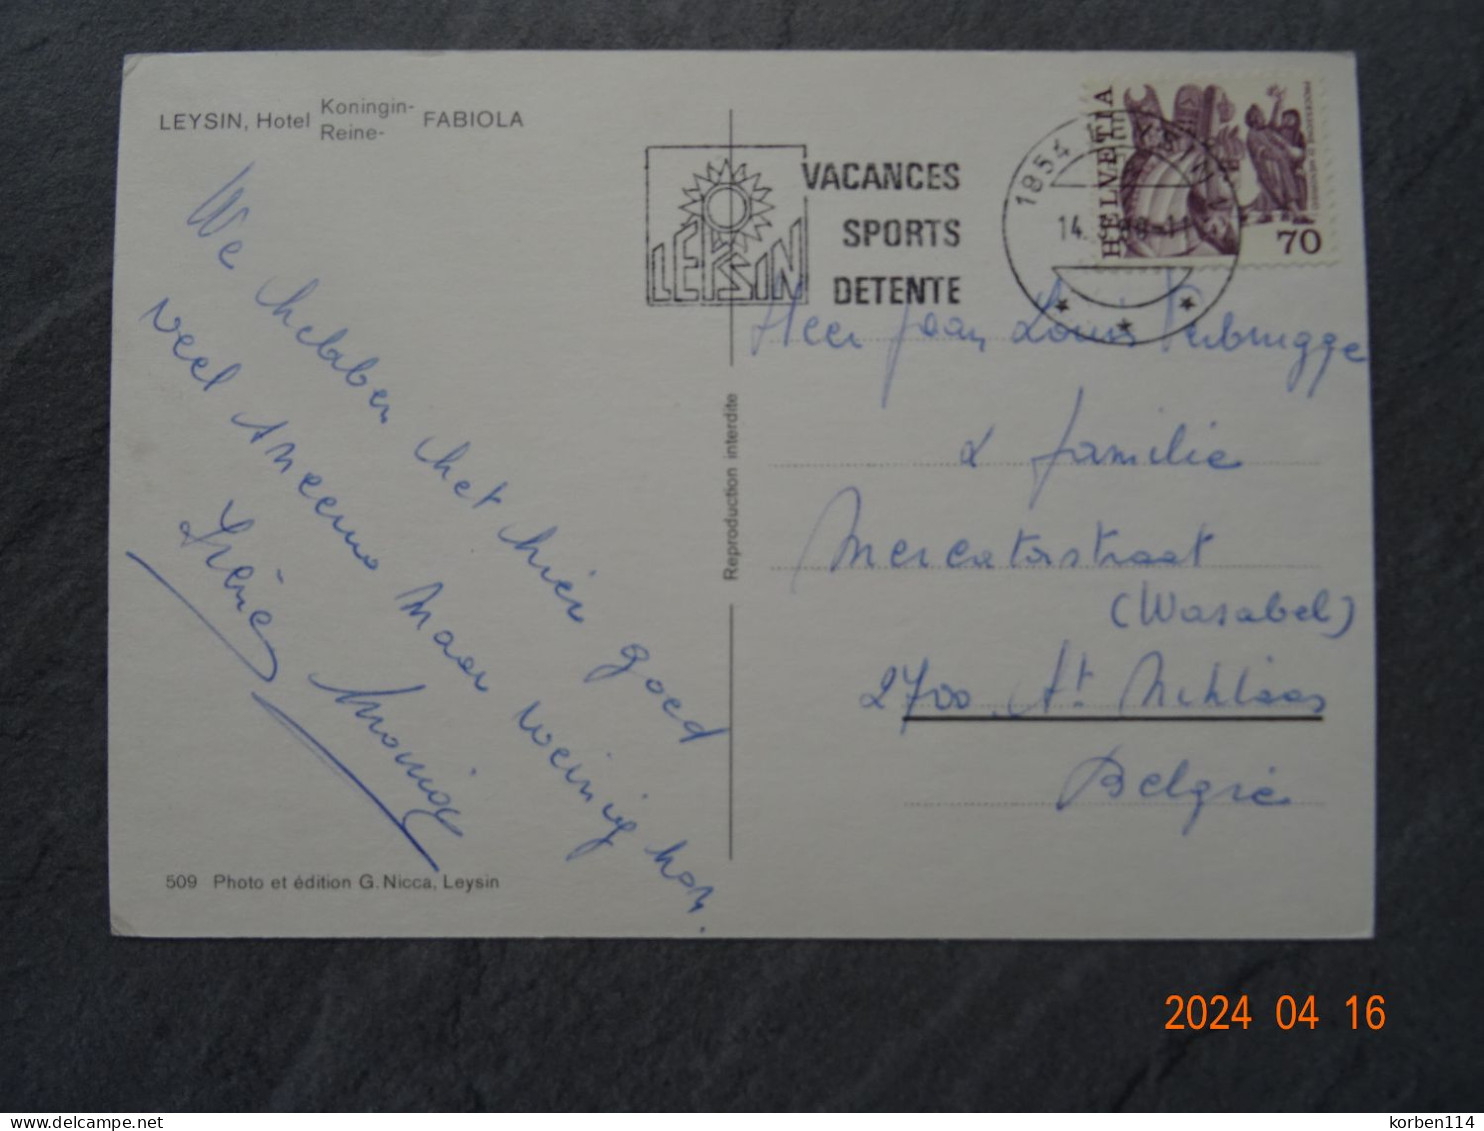 LEYSIN, Hotel Koningin- Reine- FABIOLA
We hebben het hier goed
veel sneeuw maar weinig zon.
Irène Monique
509 Photo et édition G. Nicca, Leysin
Reproduction interdite
LEYSIN
VACANCES
SPORTS
DETENTE
1854 LEYSIN
14.
HELVETIA
70
Heer Jean Louis Verbrugge
& familie
Mercatorstraat
(Wasabel)
2700 St Niklaas
België
2024 04 16
korben114